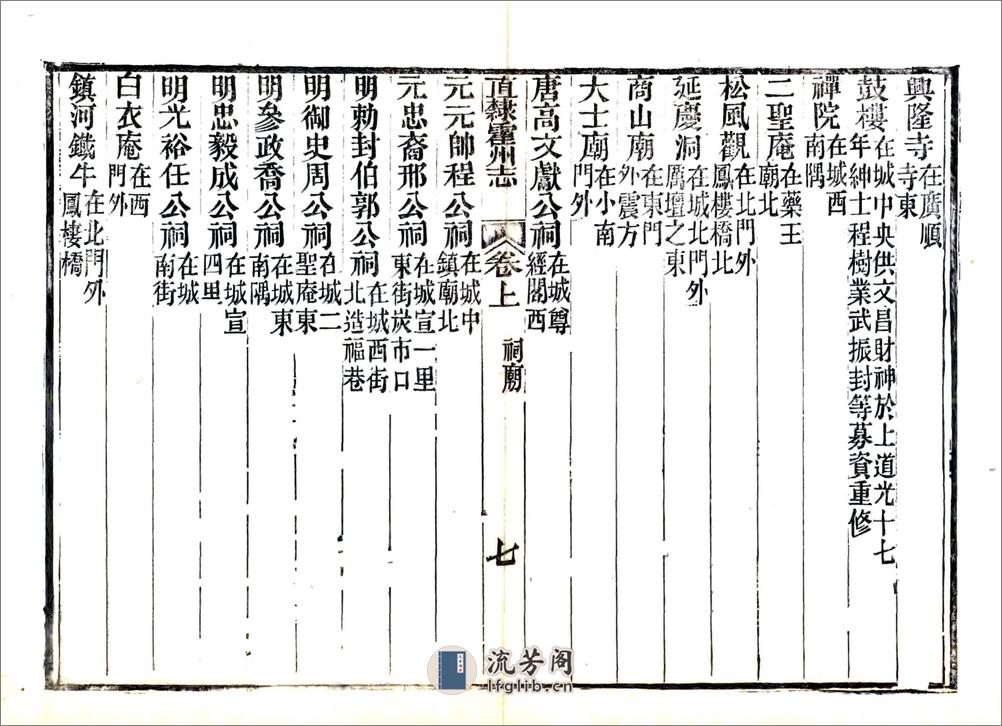 興隆寺在廣順寺東
鼓樓在城中央供文昌財神於上道光十七年紳士程樹業武振封等募資重修
禪院在城西南隅
二聖庵在藥王廟北
松風觀在北門外鳳樓橋北
延慶洞在城北門外厲壇之東
商山廟在東門外震方
大士廟在小南門外
唐高文獻公祠在城尊經閣西
直隸霍州志 卷上 祠廟 七
元元帥程公祠在城中鎮廟北
元忠裔邢公祠在城宣一里東街於市口
明勅封伯郭公祠在城西街北造福巷
明御史周公祠在城二聖庵東
明參政喬公祠在城東南隅
明忠毅成公祠在城宣四里
明光裕任公祠在城南街
白衣庵在西門外
鎮河鐵牛在北門外鳳樓橋
流芳阁
lfglib.cn